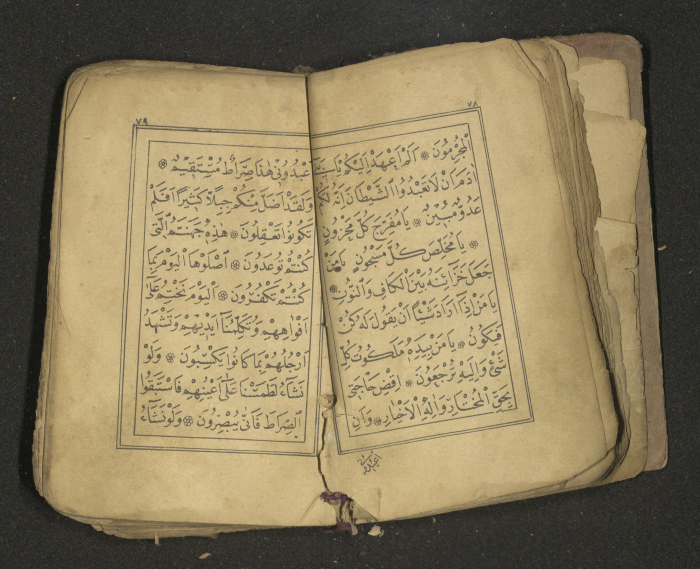 ٧٨
الْمُجْرِمُونَ ۞ اَلَمْ اَعْهَدْ اِلَيْكُمْ يَابَنِى
اٰدَمَ اَنْ لَا تَعْبُدُوا الشَّيْطَانَ اِنَّهُ لَكُمْ
عَدُوٌّ مُبِينٌ ۞ يَا مُفَرِّجَ كُلِّ مَحْزُونٍ
۞ يَا مُخَلِّصَ كُلِّ مَسْجُونٍ يَا مَنْ
جَعَلَ خَزَائِنَهُ بَيْنَ الْكَافِ وَالنُّونِ ۞
يَا مَنْ اِذَا اَرَادَ شَيْئًا اَنْ يَقُولَ لَهُ كُنْ
فَيَكُونُ ۞ يَا مَنْ بِيَدِهِ مَلَكُوتُ كُلِّ
شَئٍ وَاِلَيْهِ تُرْجَعُونَ ۞ اِقْضِ حَاجَتِى
بِحَقِّ الْمُخْتَارِ وَاٰلِهِ الْاَخْيَارِ ۞ وَاَنِ
اعبدونى
٧٩
اعْبُدُونِى هٰذَا صِرَاطٌ مُسْتَقِيمٌ ۞
وَلَقَدْ اَضَلَّ مِنْكُمْ جِبِلًّا كَثِيرًا اَفَلَمْ
تَكُونُوا تَعْقِلُونَ ۞ هٰذِهِ جَهَنَّمُ الَّتِى
كُنْتُمْ تُوعَدُونَ ۞ اِصْلَوْهَا الْيَوْمَ بِمَا
كُنْتُمْ تَكْفُرُونَ ۞ اَلْيَوْمَ نَخْتِمُ عَلٰى
اَفْوَاهِهِمْ وَتُكَلِّمُنَا اَيْدِيهِمْ وَتَشْهَدُ
اَرْجُلُهُمْ بِمَا كَانُوا يَكْسِبُونَ ۞ وَلَوْ
نَشَاءُ لَطَمَسْنَا عَلٰى اَعْيُنِهِمْ فَاسْتَبَقُوا
الصِّرَاطَ فَاَنّٰى يُبْصِرُونَ ۞ وَلَوْ نَشَاءُ